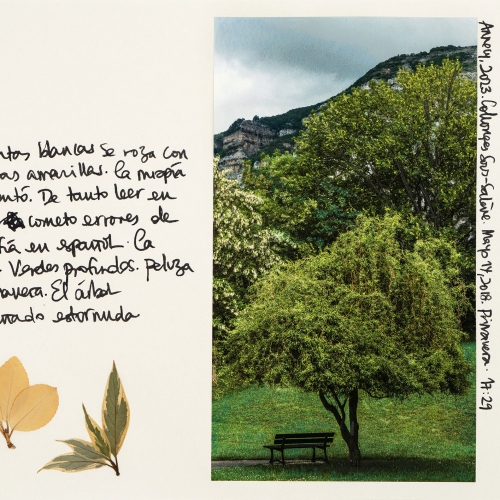 ntas blancas se roza con
as amarillas. La miopía
entó. De tanto leer en
cometo errores de
fía en español. La
Verdes profundos. Peluza
avera. El árbol
rado estornuda
Annecy, 2023. Collonges Sous-Salève. Mayo 14, 2018. Primavera. 17:29